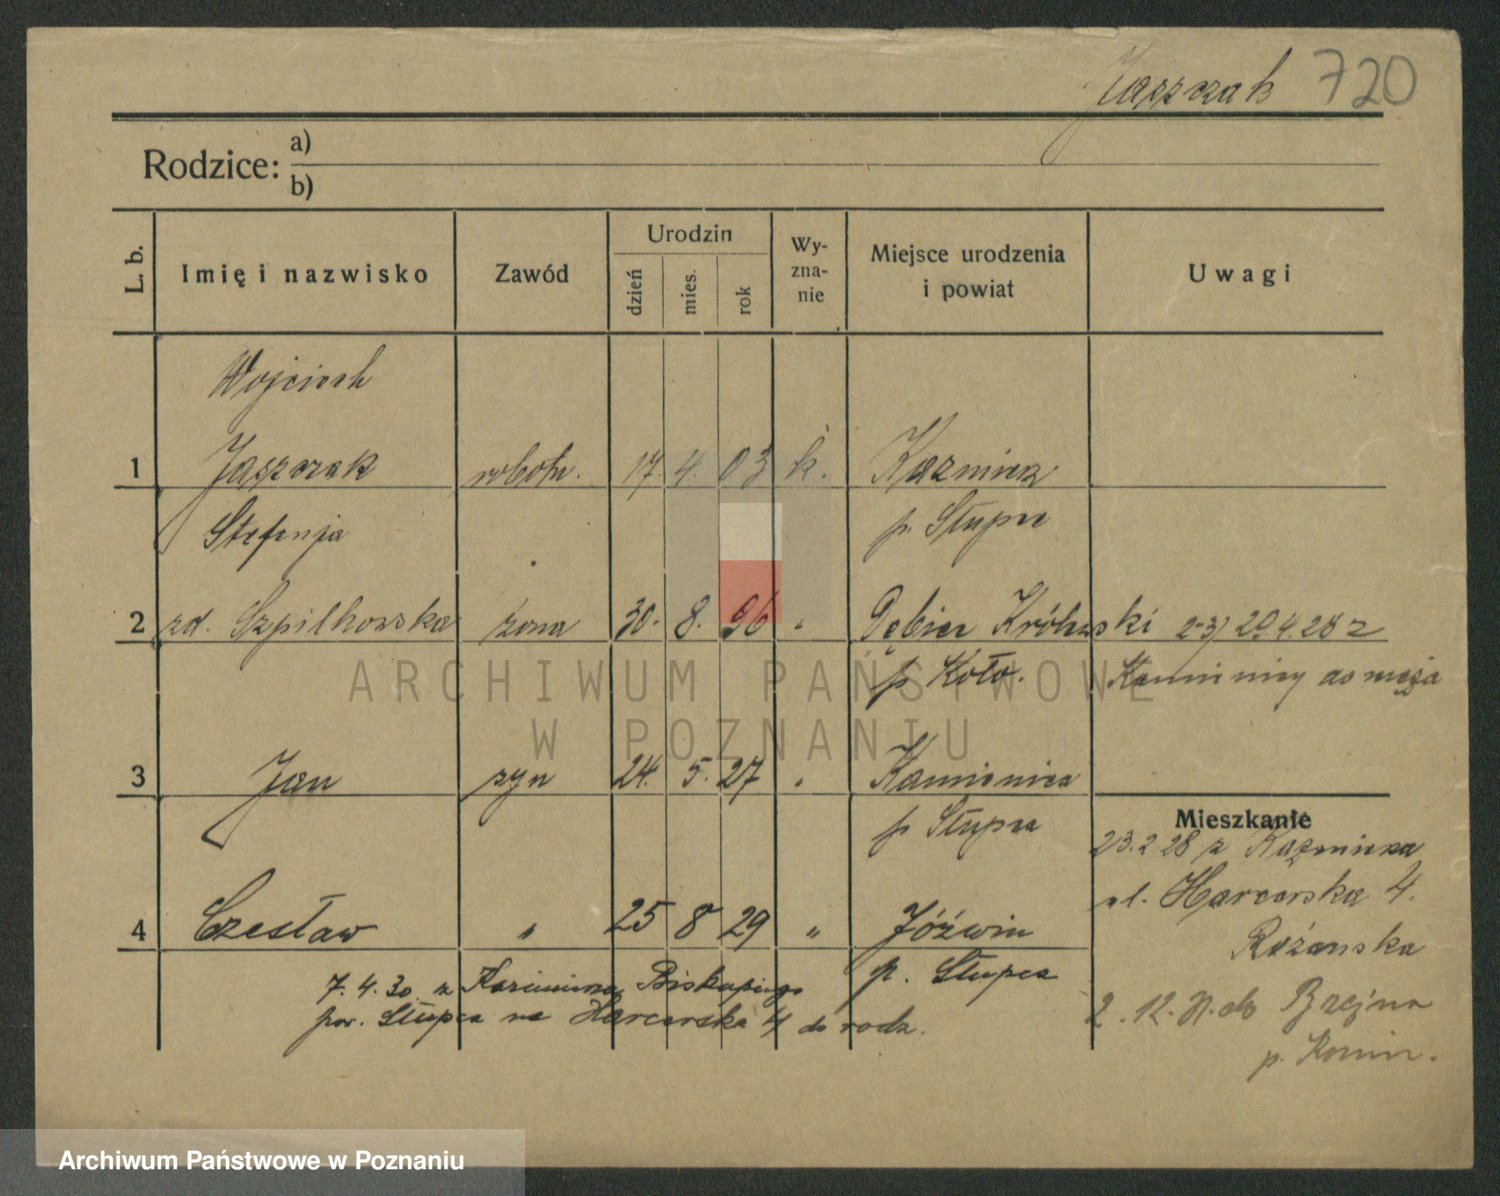 Jaszczak 720
Rodzice: a)
b)
L. b.
Imię i nazwisko
Zawód
Urodzin
dzień
mies.
rok
Wy-
zna-
nie
Miejsce urodzenia
i powiat
Uwagi
Wojciech
1 Jaszczak robotn. 17 4. 03 k. Kazmierz
Stefanja p. Słupca
2 zd. Szpilkowska żona 30. 8. 96 " Dębica Królewski 2-3) 20.4.28 z
p. Koło. Kamienicy do męża
3 Jan syn 24. 5. 27 " Kamienica
p. Słupca
Mieszkanie
23.2.28 z Kazmierza
ul. Harcerska 4.
4 Czesław " 25 8 29 " Jóźwin
Różańska
p. Słupca
7.4.30 z Kazimierza Biskupiego
pow. Słupca na Harcerska 4 do rodz.
2.12. do
p. Konin.
ARCHIWUM PAŃSTWOWE
W POZNANIU
Archiwum Państwowe w Poznaniu